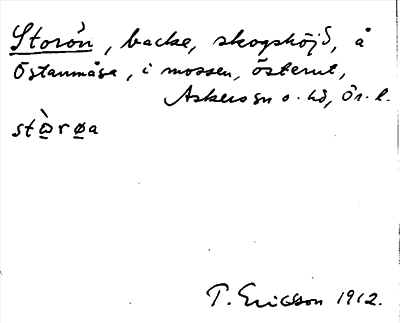 Storön, backe, skogshöjd, å
Östanmåsa, i mossen, österut,
Askers sn o. hd, Ör. l.
stø̀røa
T. Ericson 1912.